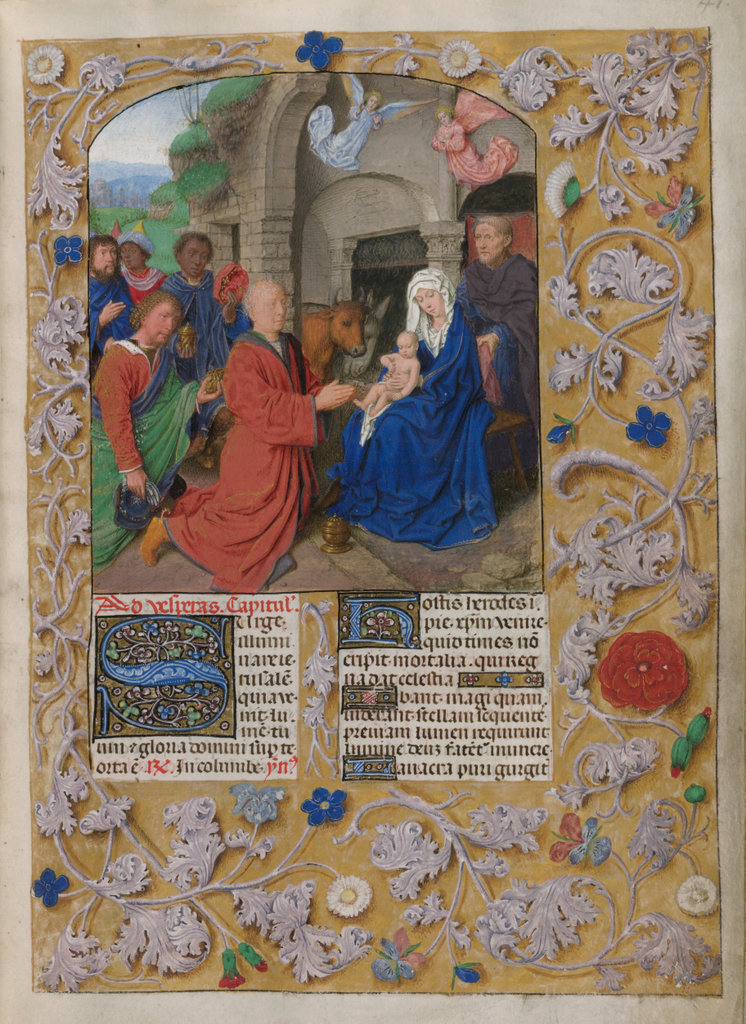 Ad vesperas. Capitul'.
Surge
illumi
nare ie
rusalē
quia ve
nit lu
mē tu
um ⁊ gloria domini sup te
orta ē. ℟. In columbe. ymꝰ
Hostis herodes i.
pie. xp̄m venire
quid times nō
eripit mortalia. qui reg
na dat celestia
Ibant magi quam
viderant stellam sequente
previam lumen requirunt
lumine deuz fatēt' munere
Lavacra puri gurgit